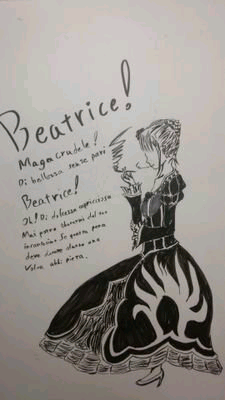 Beatrice!
Maga crudele!
Di bellezza senza pari
Beatrice!
Oh! Di dolcezza capricciosa
Mai potrò liberarmi dal tuo
incantesimo Se questa pena
deve durare una
Volta abbi pietà.